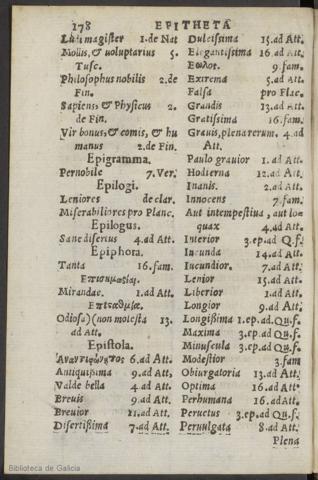 178 EPITHETA
Ludi magister 1. de Nat
Mollis, & voluptarius 5.
Tusc.
Philosophus nobilis 2. de
Fin.
Sapiens, & Physicus 2.
de Fin.
Vir bonus, & comis, & hu
manus 2. de Fin.
Epigramma.
Pernobile 7. Ver.
Epilogi.
Leniores de clar.
Miserabiliores pro Planc.
Epilogus.
Sane disertus 4. ad Att.
Epiphora.
Tanta 16. fam.
Mirandae. 1. ad Att.
Odiosa) (non molesta 13.
ad Att.
Epistola.
6. ad Att.
Antiquissima 9. ad Att.
Valde bella 4. ad Att.
Breuis 9. ad Att.
Breuior 11. ad Att.
Disertissima 7. ad Att.
Dulcissima 15. ad Att.
Elegantissima 16. ad Att.
Εωλος. 9. fam.
Extrema 5. ad Att.
Falsa pro Flac.
Grandis 13. ad Att.
Gratissima 16. fam.
Grauis, plena rerum. 4. ad
Att.
Paulo grauior 1. ad Att.
Hodierna 12. ad Att.
Inanis. 2. ad Att.
Innocens 7. fam.
Aut intempestiua, aut loa
quax 4. ad Att.
Interior 3. ep. ad Q. f.
Iucunda 14. ad Att.
Iucundior. 7. ad Att.
Lenior 15. ad Att.
Liberior 1. ad Att.
Longior 9. ad Att.
Longissima 1. ep. ad. Qu. f.
Maxima 3. ep. ad Qu. f.
Minuscula 3. ep. ad Qu. f.
Modestior 3. fam
Obiurgatoria 13. ad Att.
Optima 16. ad Att.
Perhumana 16. ad Att.
Peructus 3. ep. ad Qu. f.
Peruulgata 8. ad Att.
Plena
Biblioteca de Galicia